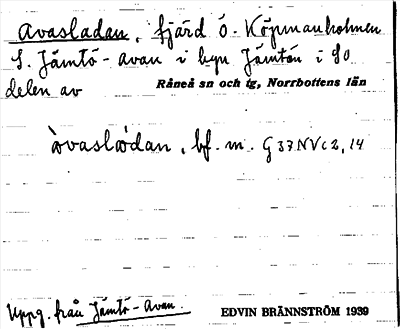 Avasladan, fjärd Ö. Köpmanholmen
S. Jämtö-avan i byn Jämtön i SO
delen av Råneå sn och tg, Norrbottens län
àvaslàdan, bf. m. G 37 NV c 2, 14
Uppg. från Jämtö-avan. EDVIN BRÄNNSTRÖM 1939